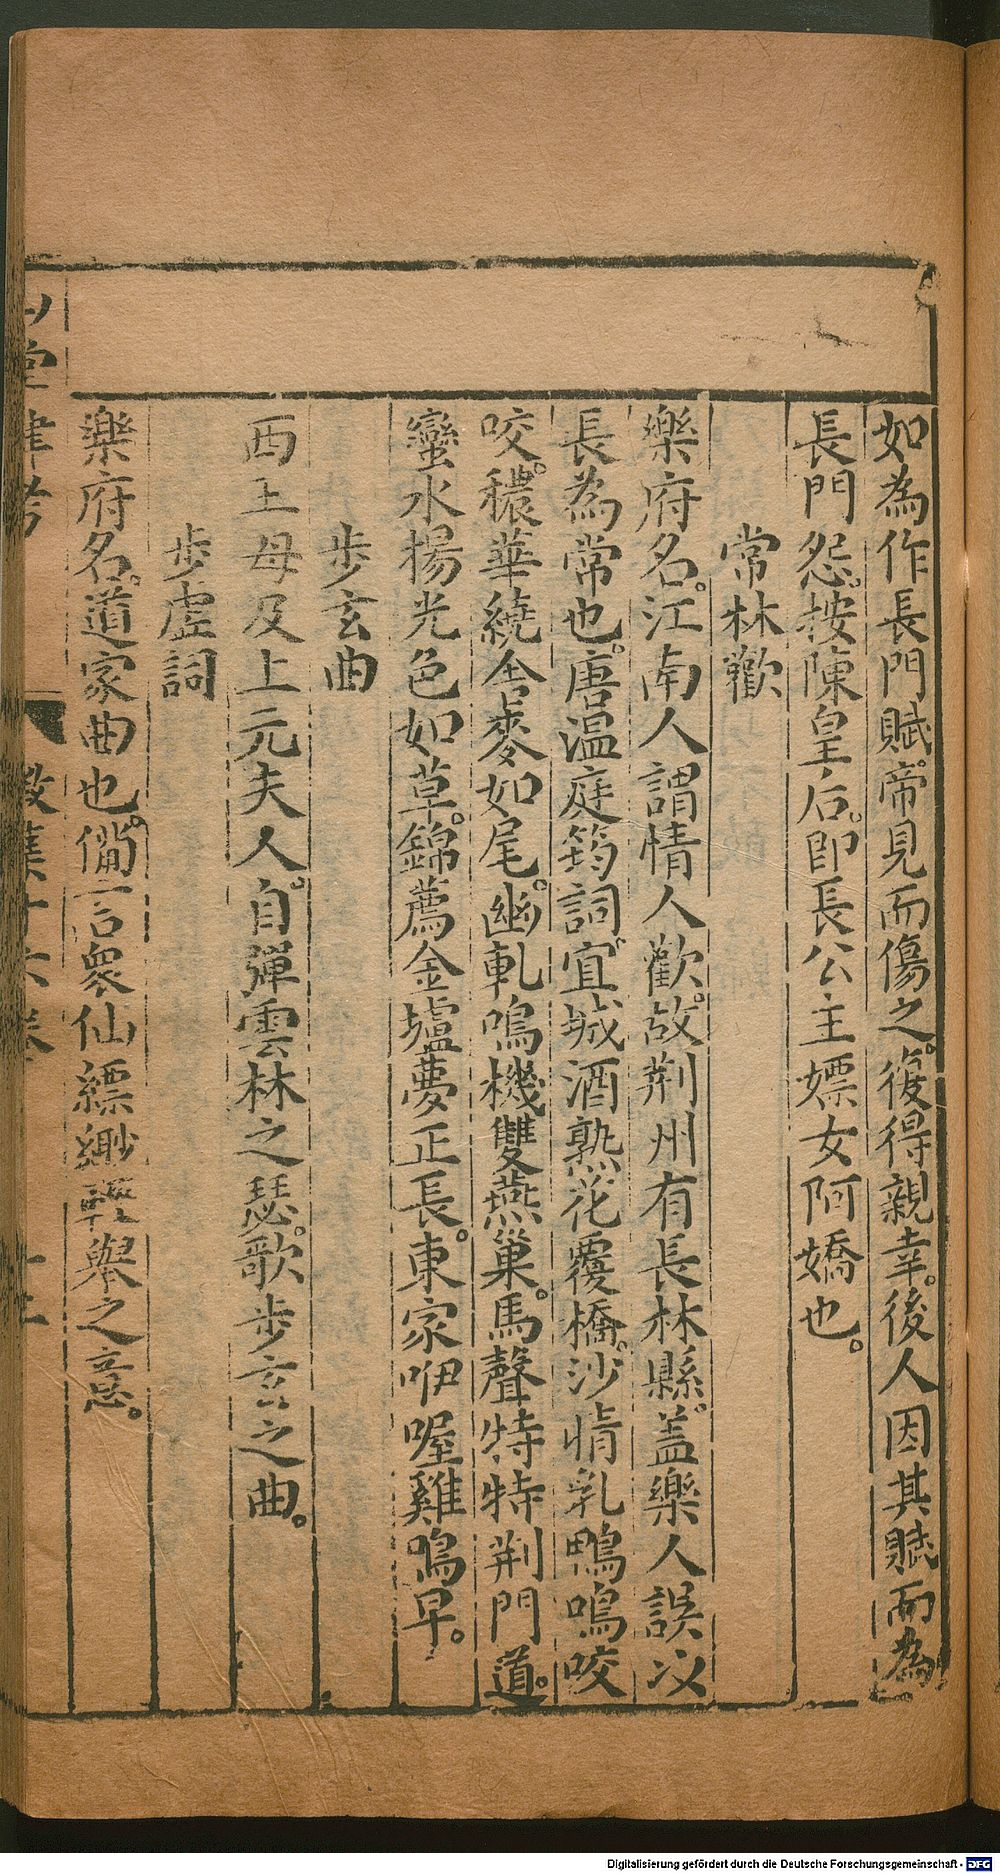 如為作長門賦。帝見而傷之。復得親幸。後人因其賦而為
長門怨。按陳皇后。即長公主嫖女阿嬌也。
常林歡
樂府名。江南人謂情人歡。故荆州有長林縣。盖樂人誤以
長為常也。唐温庭筠詞。宜城酒熟花覆橋。沙晴乳鴨鳴咬
咬。穠華繞舎麥如尾。幽軋鳴機雙燕巢。馬聲特特荆門道。
蠻水楊光色如草。錦薦金壚夢正長。東家咿喔雞鳴早。
步玄曲
西王母及上元夫人。自彈雲林之瑟。歌步玄之曲。
步虛詞
樂府名。道家曲也。備言衆仙縹緲輕舉之意。
山堂肆考
徵集十六卷
Digitalisierung gefördert durch die Deutsche Forschungsgemeinschaft - DFG